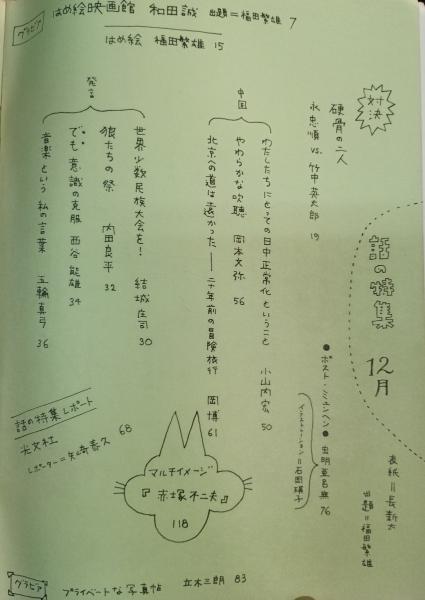 グラビア
はめ絵映画館 和田誠 出題=福田繁雄 7
はめ絵 福田繁雄 15
話の特集
12月
表紙=長新太
出題=福田繁雄
対決
硬骨の二人
永忠順 vs. 竹中英太郎 19
●ポスト・ミュンヘン● 虫明亜呂無 76
イラストレーション=石岡瑛子
中国
わたしたちにとっての日中正常化ということ 小山内宏 50
やわらかな吹聴 岡本文弥 56
北京への道は遠かった——二十年前の冒険旅行 岡博 61
発言
世界少数民族大会を! 結城庄司 30
狼たちの祭 内田良平 32
でも意識の克服 西谷能雄 34
音楽という私の言葉 五輪真弓 36
話の特集レポート
光文社
レポーター=矢崎泰久 68
マルチイメージ
『赤塚不二夫』
118
グラビア
プライベートな写真帖 立木三朗 83